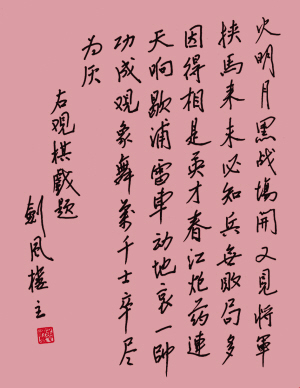 火明月黑战场开又见将軍
挟馬来未必知兵無敗局多
因得相是英才春江炮药連
天响歇浦雷車动地哀一帥
功成观象舞万千士卒尽
为灰
右观棋戲題
劍风楼主